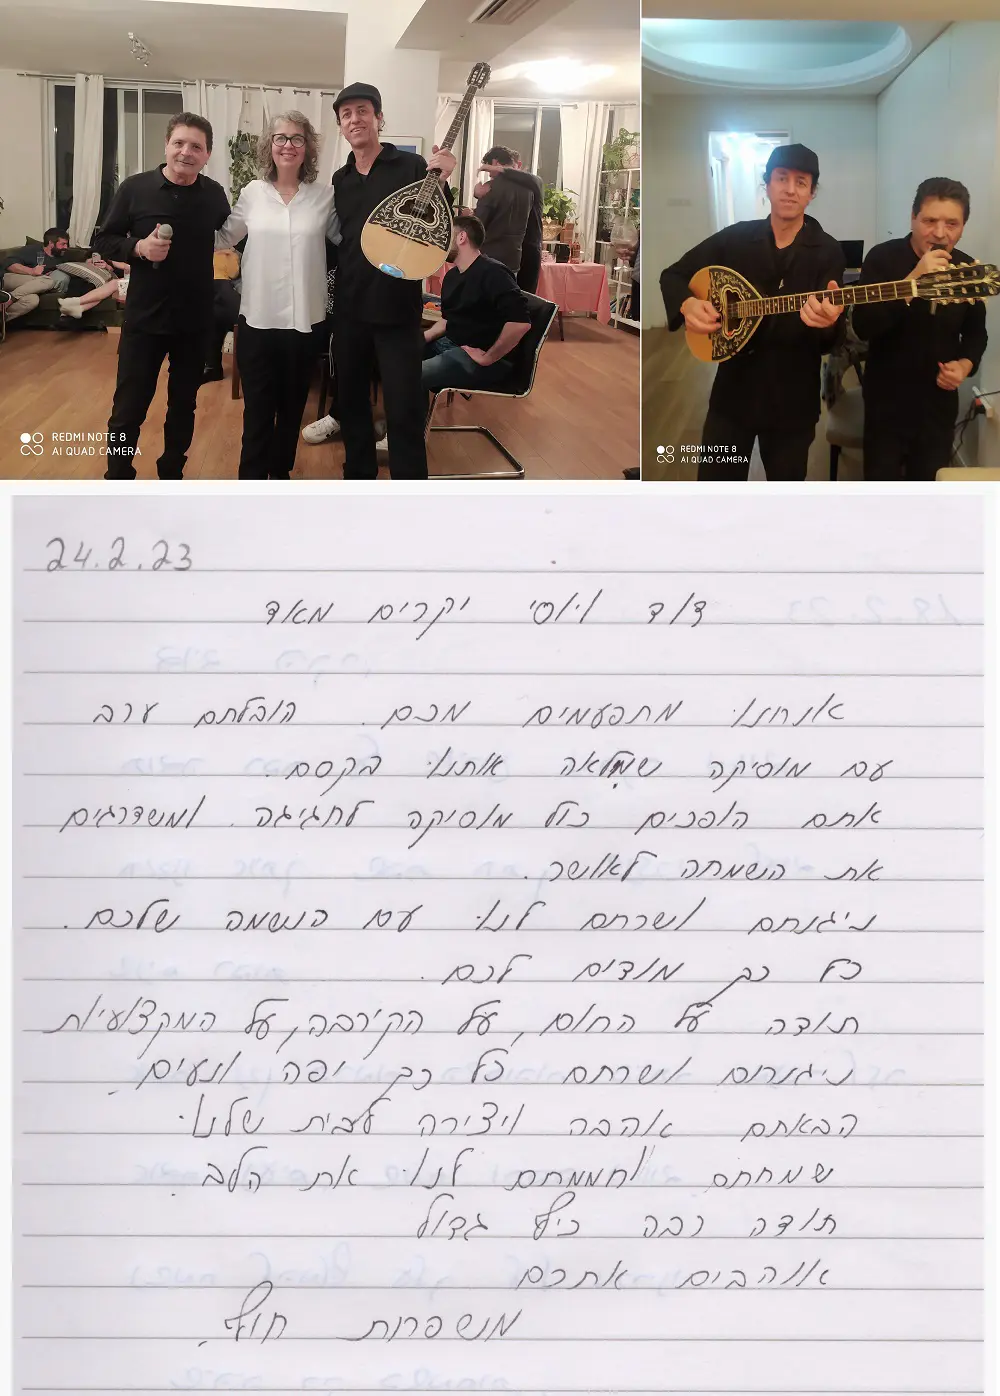 REDMI NOTE 8
AI QUAD CAMERA
REDMI NOTE 8
AI QUAD CAMERA
24.2.23
דוד ויוסי יקרים מאד
אנחנו מתפעמים מכם. הובלתם ערב
עם מוסיקה שמלאה אותנו בקסם.
אתם הופכים כול מוסיקה לחגיגה. ומשדרגים
את השמחה לאושר.
ניגנתם ושרתם לנו עם הנשמה שלכם.
כל כך מודים לכם.
תודה על החום, על הקירבה, על המקצועיות
ניגנתם ושרתם כל כך יפה ונעים.
הבאתם אהבה ויצירה לבית שלנו.
שמחתם וחממתם לנו את הלב.
תודה רבה כיף גדול
אוהבים אתכם
משפחת חורף.